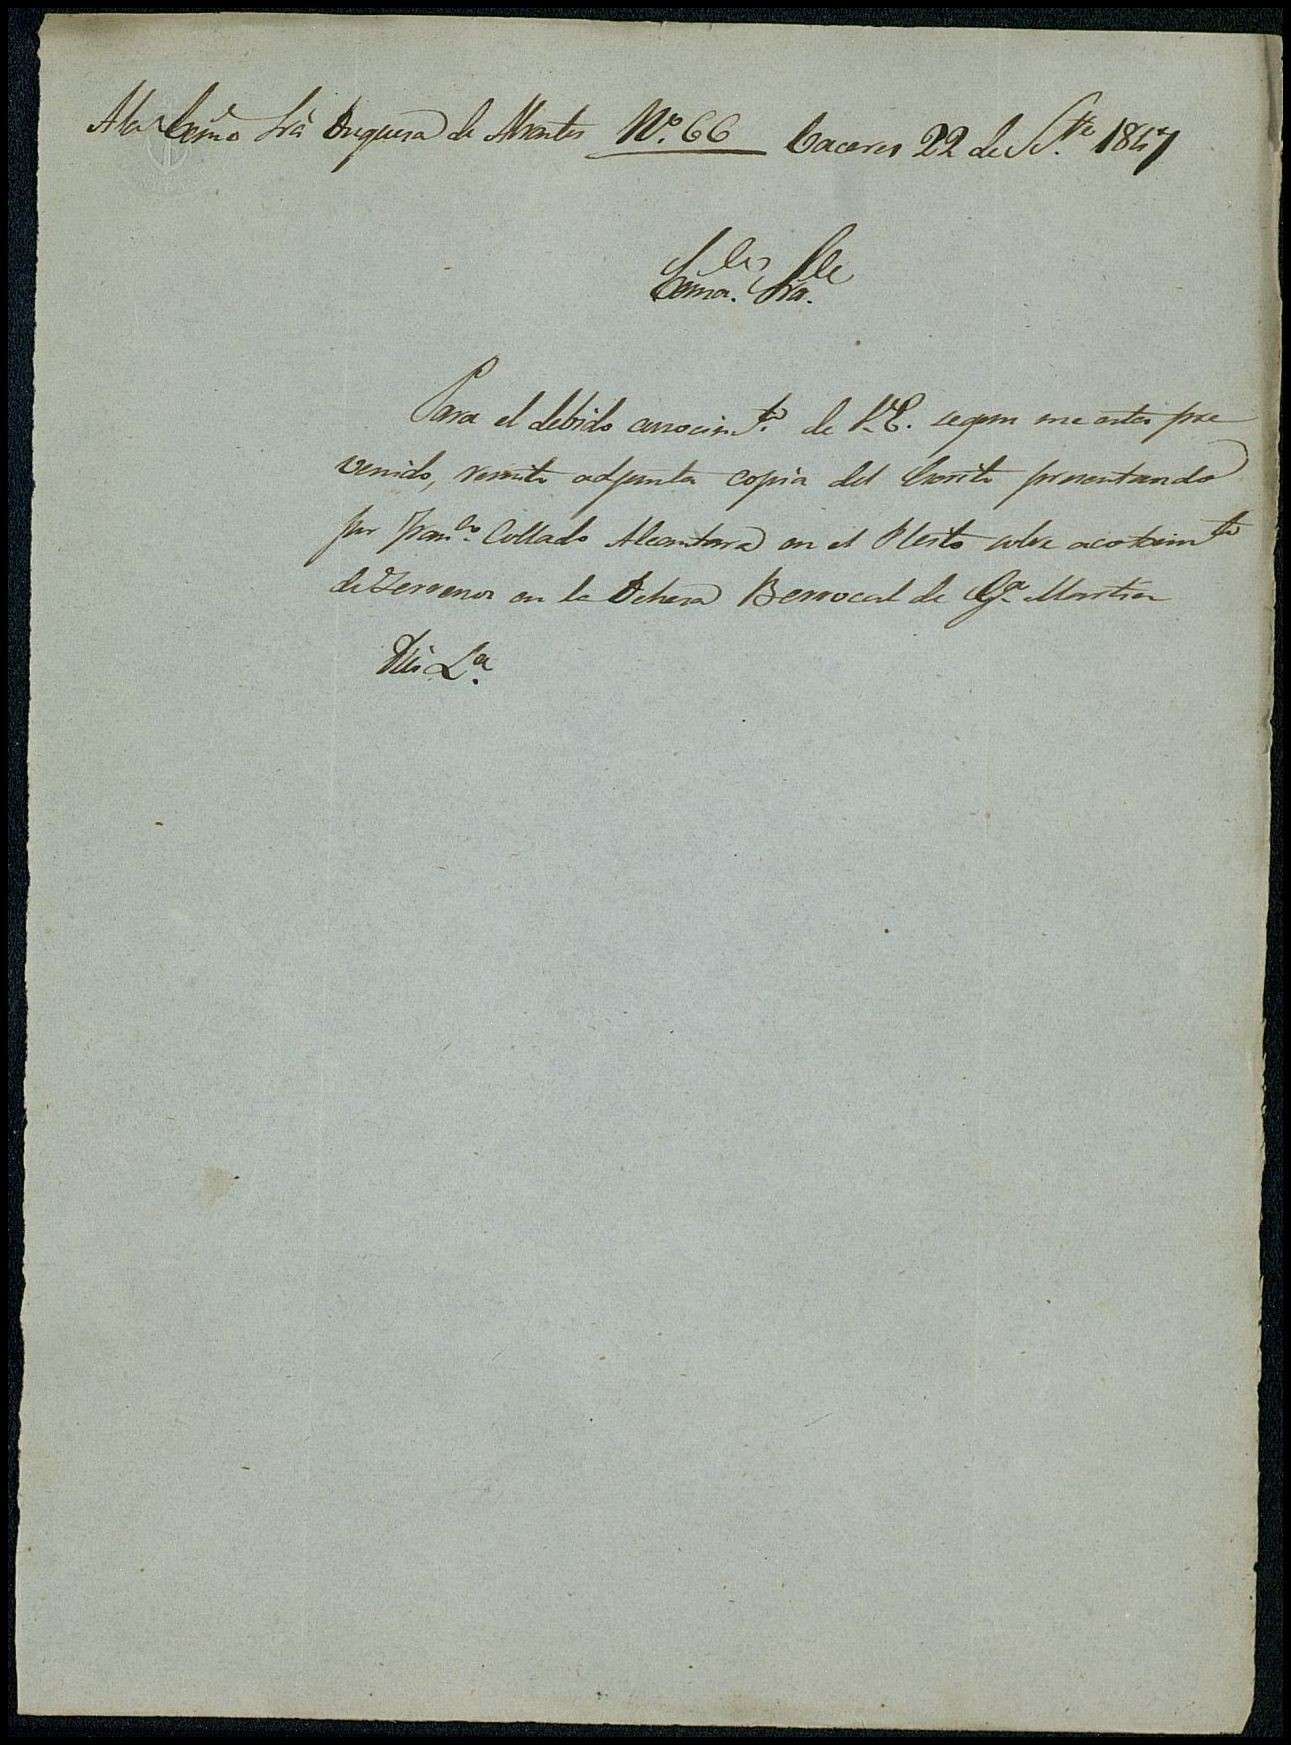 A la Exmã Srã Duquesa de Abrantes Nº. 66 Caceres 22 de S.ᵗᵉ 1847
Exma. Sra.
Para el debido conocim.ᵗᵒ de V.E. segun me estа pre
venido, remito adjunta copia del Escrito presentando
por Fran.ᶜᵒ Collado Alcantara en el Pleito sobre acotacimᵗᵒ
de Terrenos en la Dehesa Berrocal de Gᵃ Martin